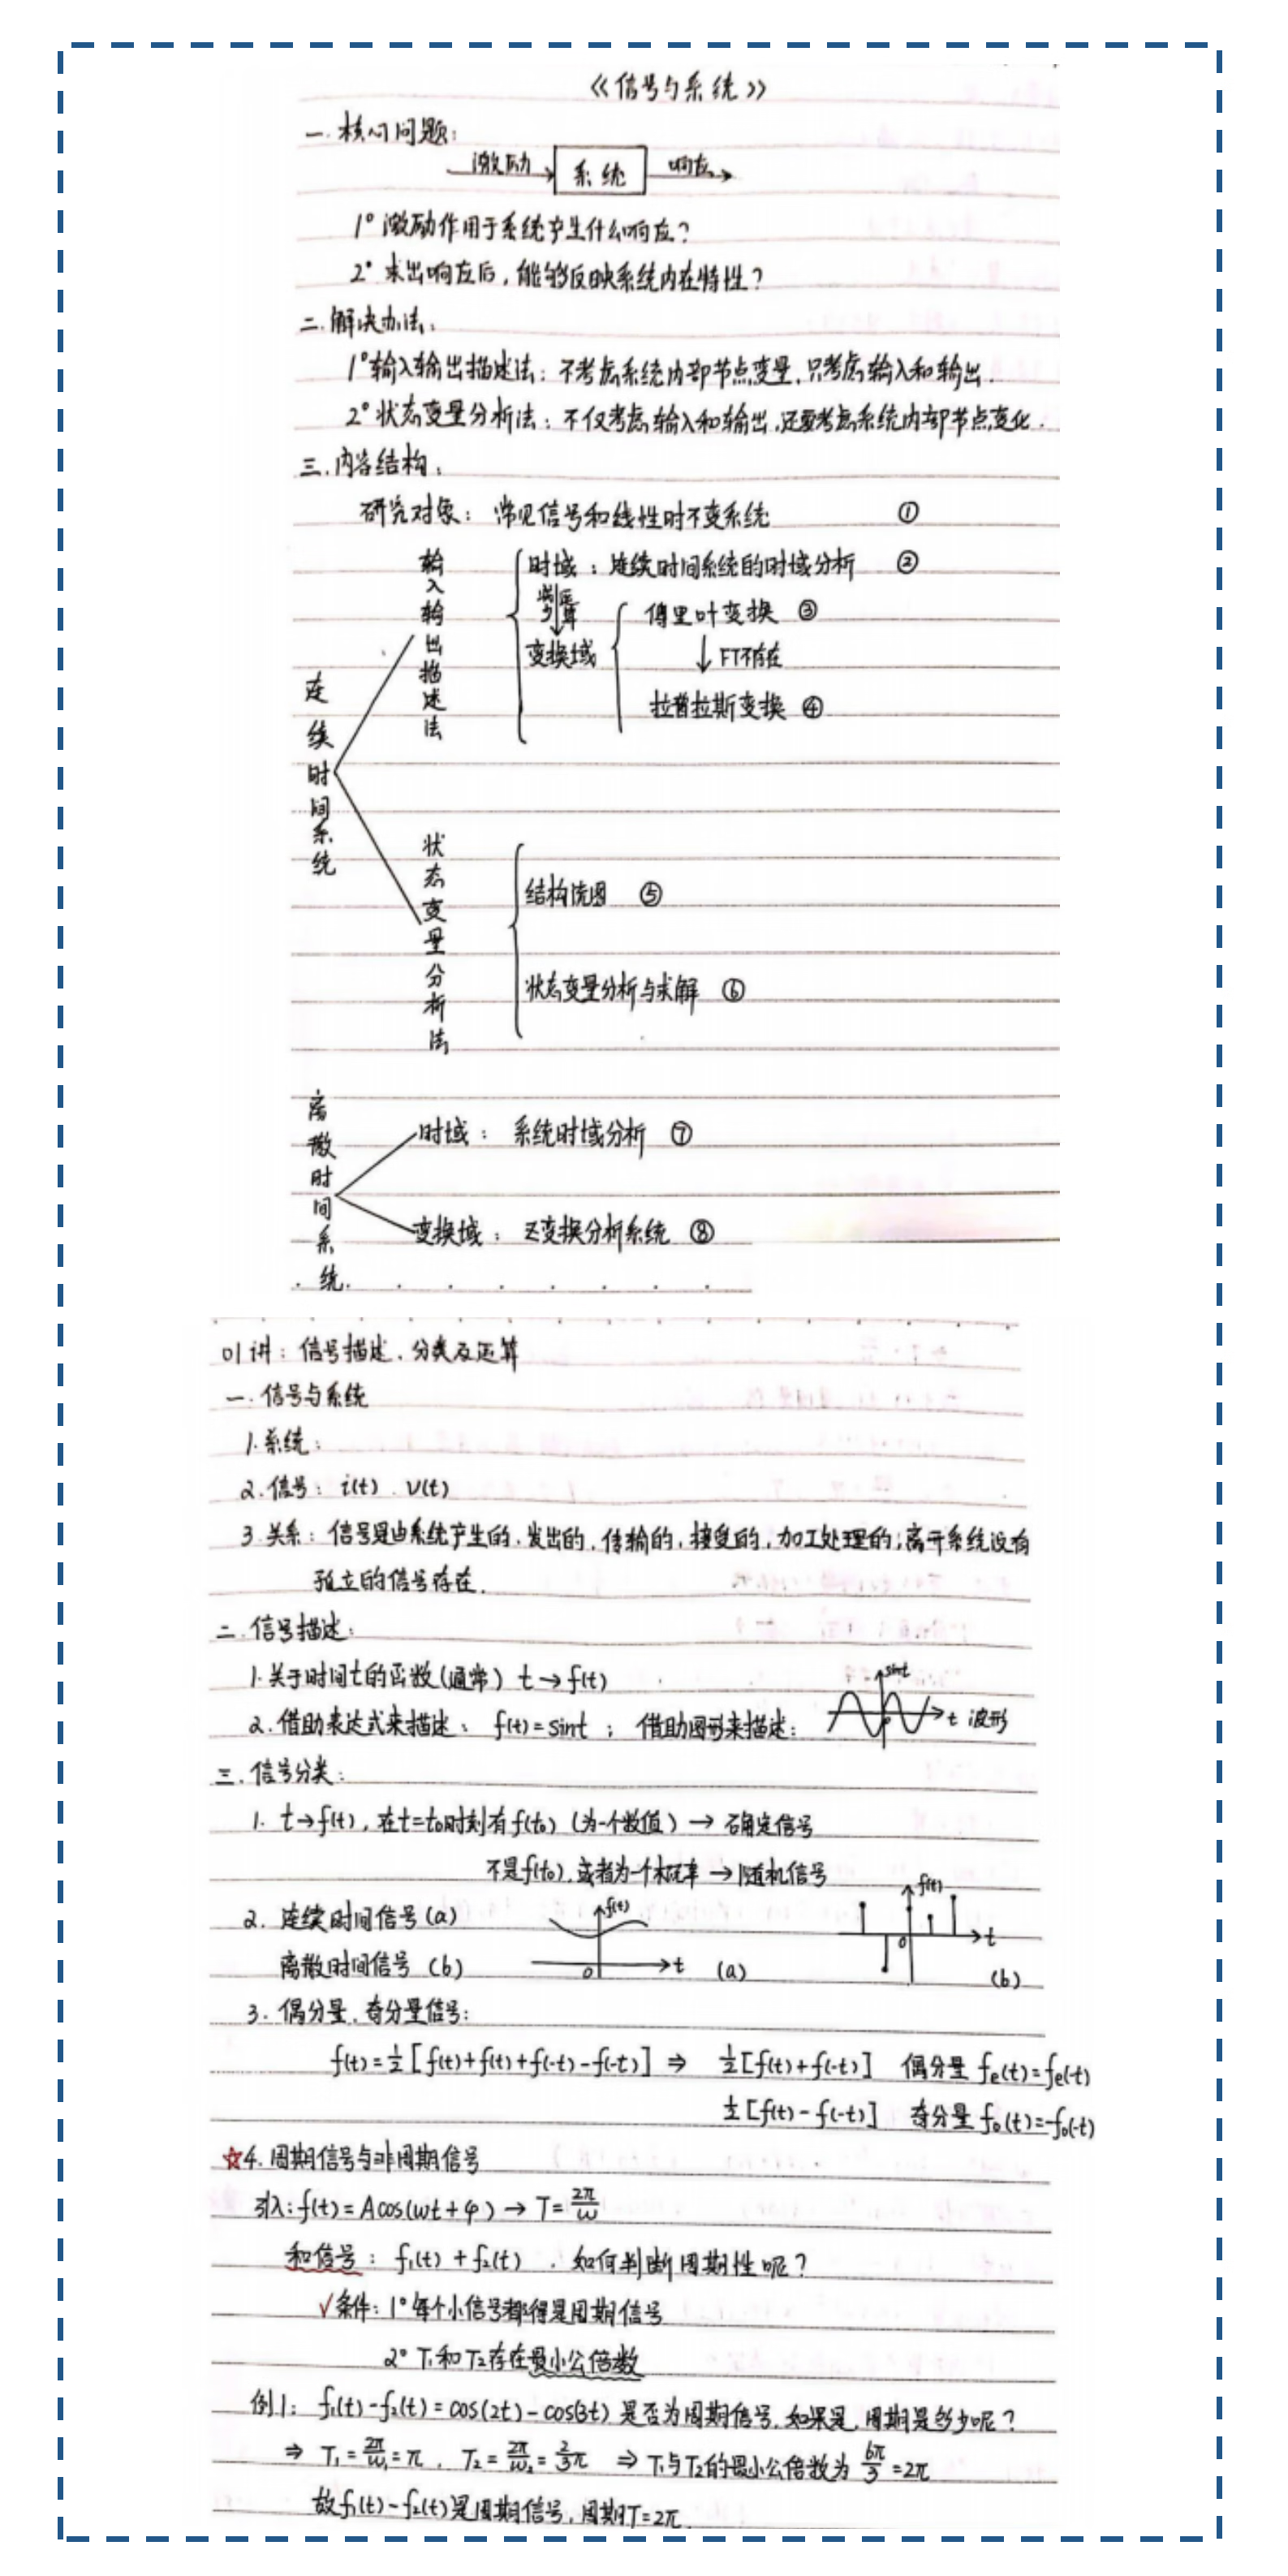 《信号与系统》
一.核心问题:
激励 系统 响应
1° 激励作用于系统产生什么响应?
2° 求出响应后,能够反映系统内在特性?
二.解决办法:
1°输入输出描述法:不考虑系统内部节点变量,只考虑输入和输出.
2°状态变量分析法:不仅考虑输入和输出,还要考虑系统内部节点变化.
三.内容结构:
研究对象: 常见信号和线性时不变系统 ①
连续时间系统
输入输出描述法
时域:连续时间系统的时域分析 ②
运算
变换域
傅里叶变换 ③
↓FT不存在
拉普拉斯变换 ④
状态变量分析法
结构流图 ⑤
状态变量分析与求解 ⑥
离散时间系统
时域: 系统时域分析 ⑦
变换域: Z变换分析系统 ⑧
01讲:信号描述.分类及运算
一.信号与系统
1.系统:
2.信号: i(t) . v(t)
3.关系:信号是由系统产生的,发出的,传输的,接受的,加工处理的;离开系统没有
孤立的信号存在.
二.信号描述:
1.关于时间t的函数(通常) t→f(t)
2.借助表达式来描述: f(t)=sint ; 借助图形来描述: sint t 波形
三.信号分类:
1. t→f(t),在t=t₀时刻有f(t₀)(为一个数值)→ 确定信号
不是f(t₀),或者为一个概率→随机信号
2. 连续时间信号(a)
离散时间信号(b)
f(t) 0 t (a)
f(t) 0 t (b)
3. 偶分量.奇分量信号:
f(t)=½[f(t)+f(t)+f(-t)-f(-t)] ⇒ ½[f(t)+f(-t)] 偶分量 fe(t)=fe(-t)
½[f(t)-f(-t)] 奇分量 fo(t)=-fo(-t)
☆4.周期信号与非周期信号
引入:f(t)=Acos(ωt+φ)→T=2π/ω
和信号: f₁(t)+f₂(t) . 如何判断周期性呢?
√条件:1°每个小信号都得是周期信号
2° T₁和T₂存在最小公倍数
例1: f₁(t)-f₂(t)=cos(2t)-cos(3t)是否为周期信号,如果是,周期是多少呢?
⇒ T₁=2π/ω₁=π . T₂=2π/ω₂=2/3π ⇒T₁与T₂的最小公倍数为 6π/3=2π
故f₁(t)-f₂(t)是周期信号,周期T=2π.